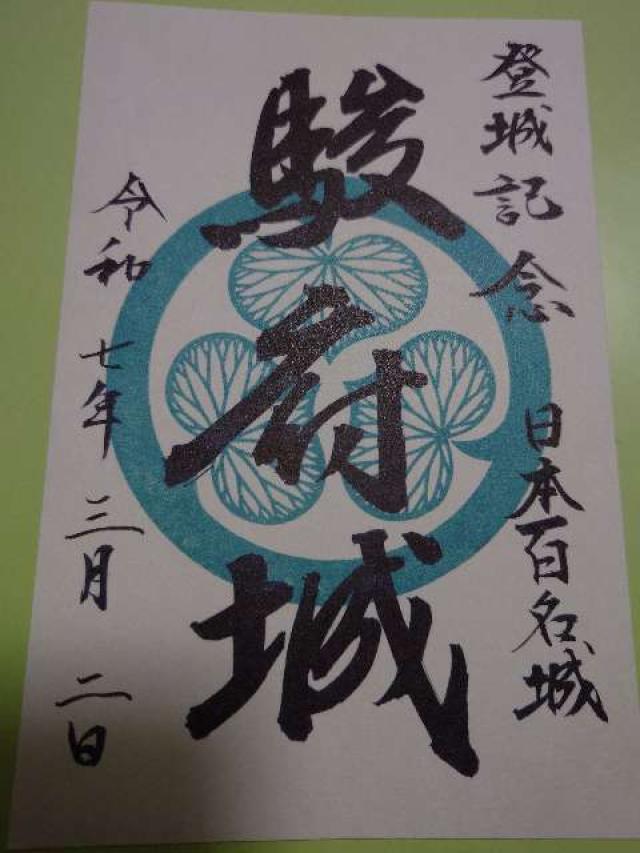 登城記念
日本百名城
駿府城
令和七年三月二日